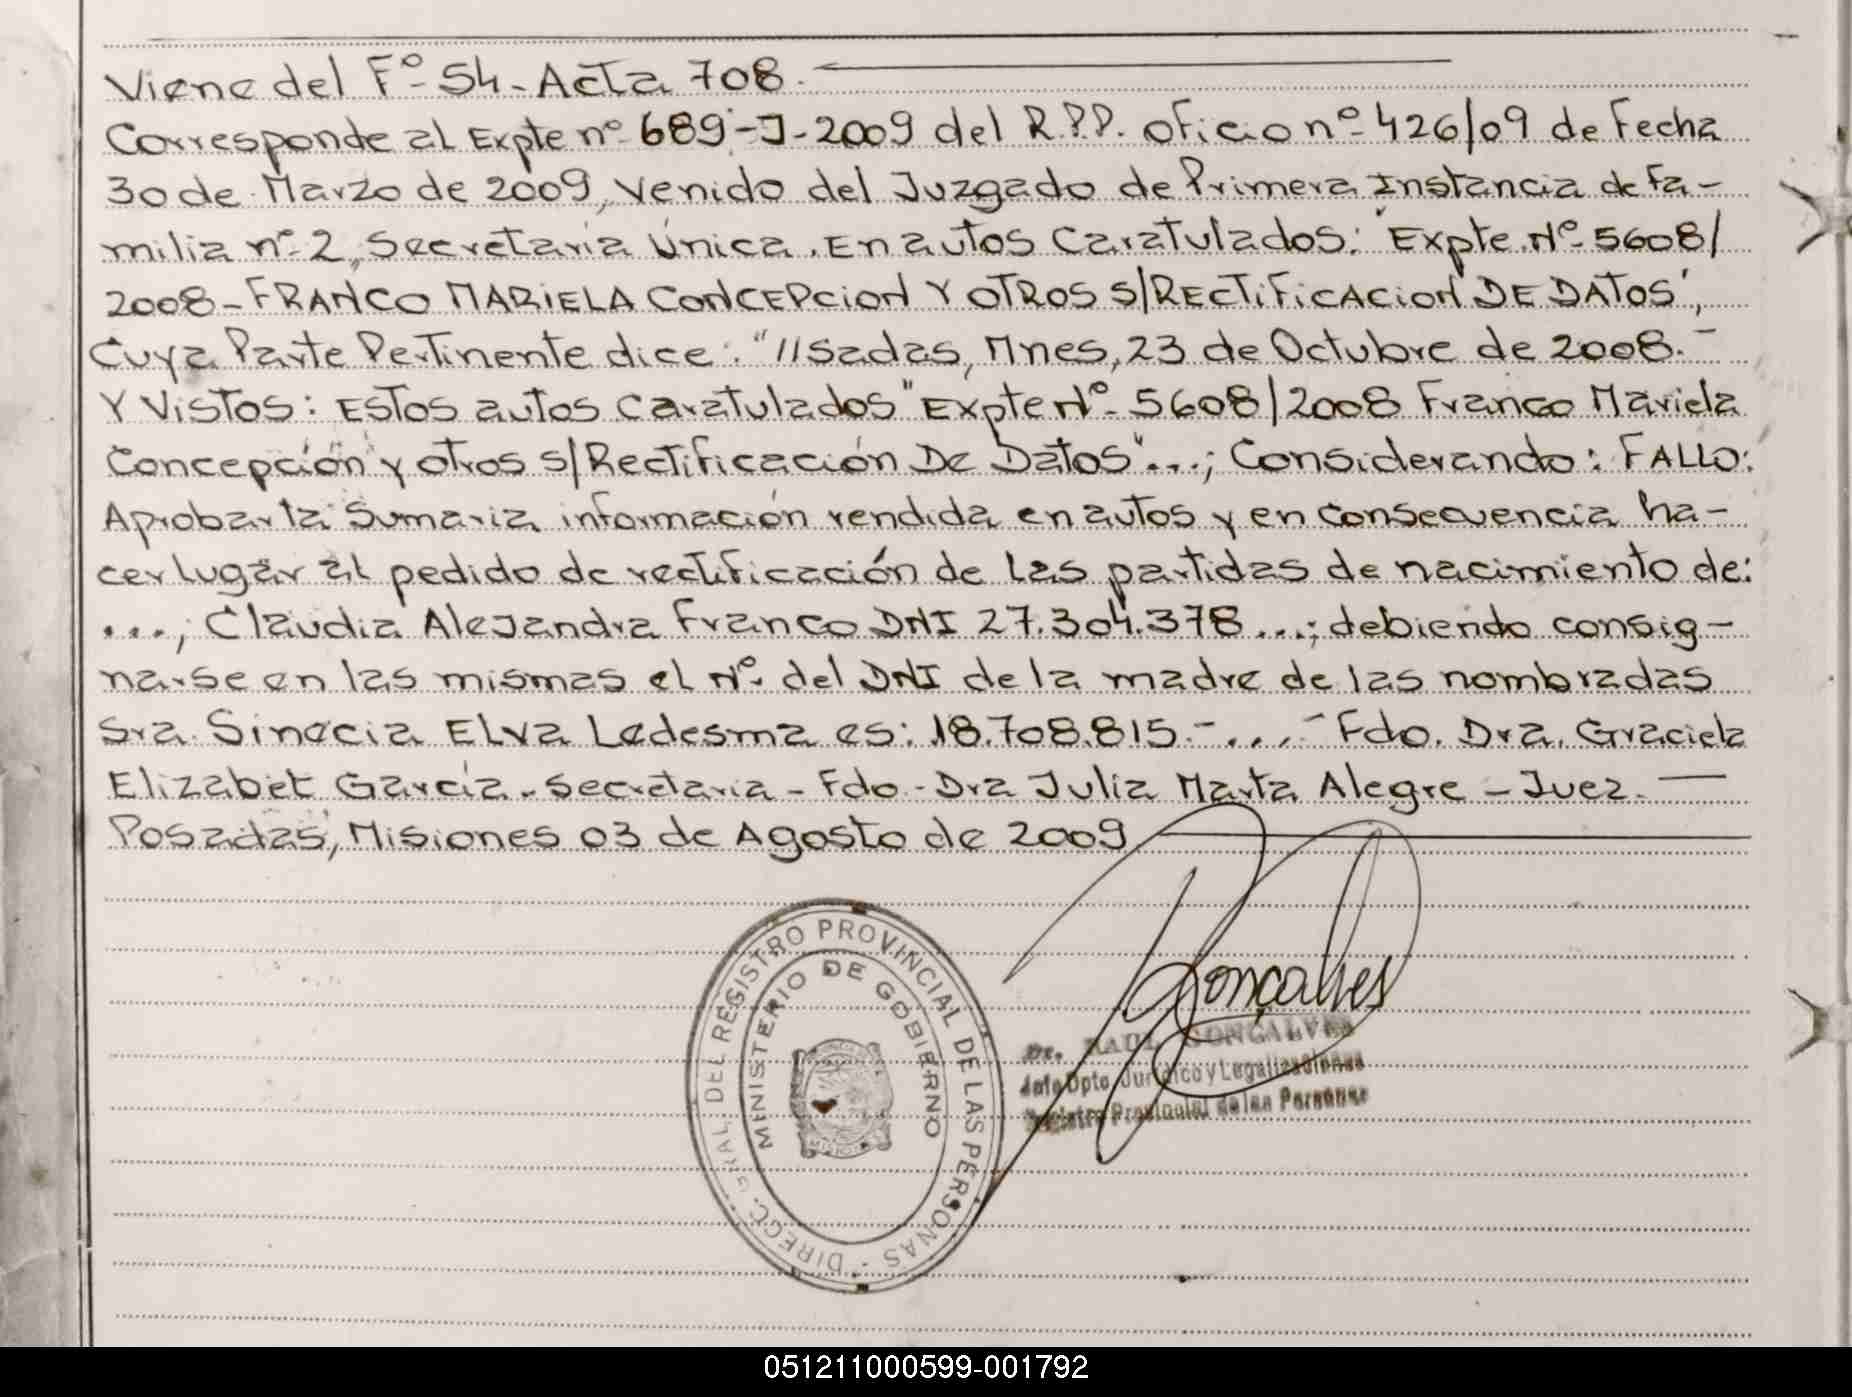 Viene del Fº- 54- Acta 708.
Corresponde al Expte nº- 689-J-2009 del R.P.P. oficio nº- 426/09 de Fecha
30 de Marzo de 2009, venido del Juzgado de Primera Instancia de Fa-
milia nº- 2, Secretaría Única. En autos Caratulados: "Expte. Nº- 5608/
2008-FRANCO MARIELA CONCEPCION Y OTROS S/RECTIFICACION DE DATOS",
Cuya Parte Pertinente dice: "//sadas, Mnes, 23 de Octubre de 2008.-
Y Vistos: Estos autos caratulados "Expte Nº- 5608/2008 Franco Mariela
Concepción y otros s/Rectificación De Datos"...; Considerando: FALLO:
Aprobar la Sumaria información rendida en autos y en consecuencia ha-
cer lugar al pedido de rectificación de las partidas de nacimiento de:
...; Claudia Alejandra Franco DNI 27.304.378...; debiendo consig-
narse en las mismas el Nº- del DNI de la madre de las nombradas
Sra. Sinecia Elva Ledesma es: 18.708.815.-....- Fdo. Dra. Graciela
Elizabet García - Secretaria - Fdo - Dra Julia Marta Alegre - Juez.-
Posadas, Misiones 03 de Agosto de 2009
DIRECC. GRAL. DEL REGISTRO PROVINCIAL DE LAS PERSONAS
MINISTERIO DE GOBIERNO
MISIONES
Gonçalves
Dr. RAUL GONÇALVES
Jefe Dpto. Jurídico y Legalizaciones
Registro Provincial de las Personas
051211000599-001792